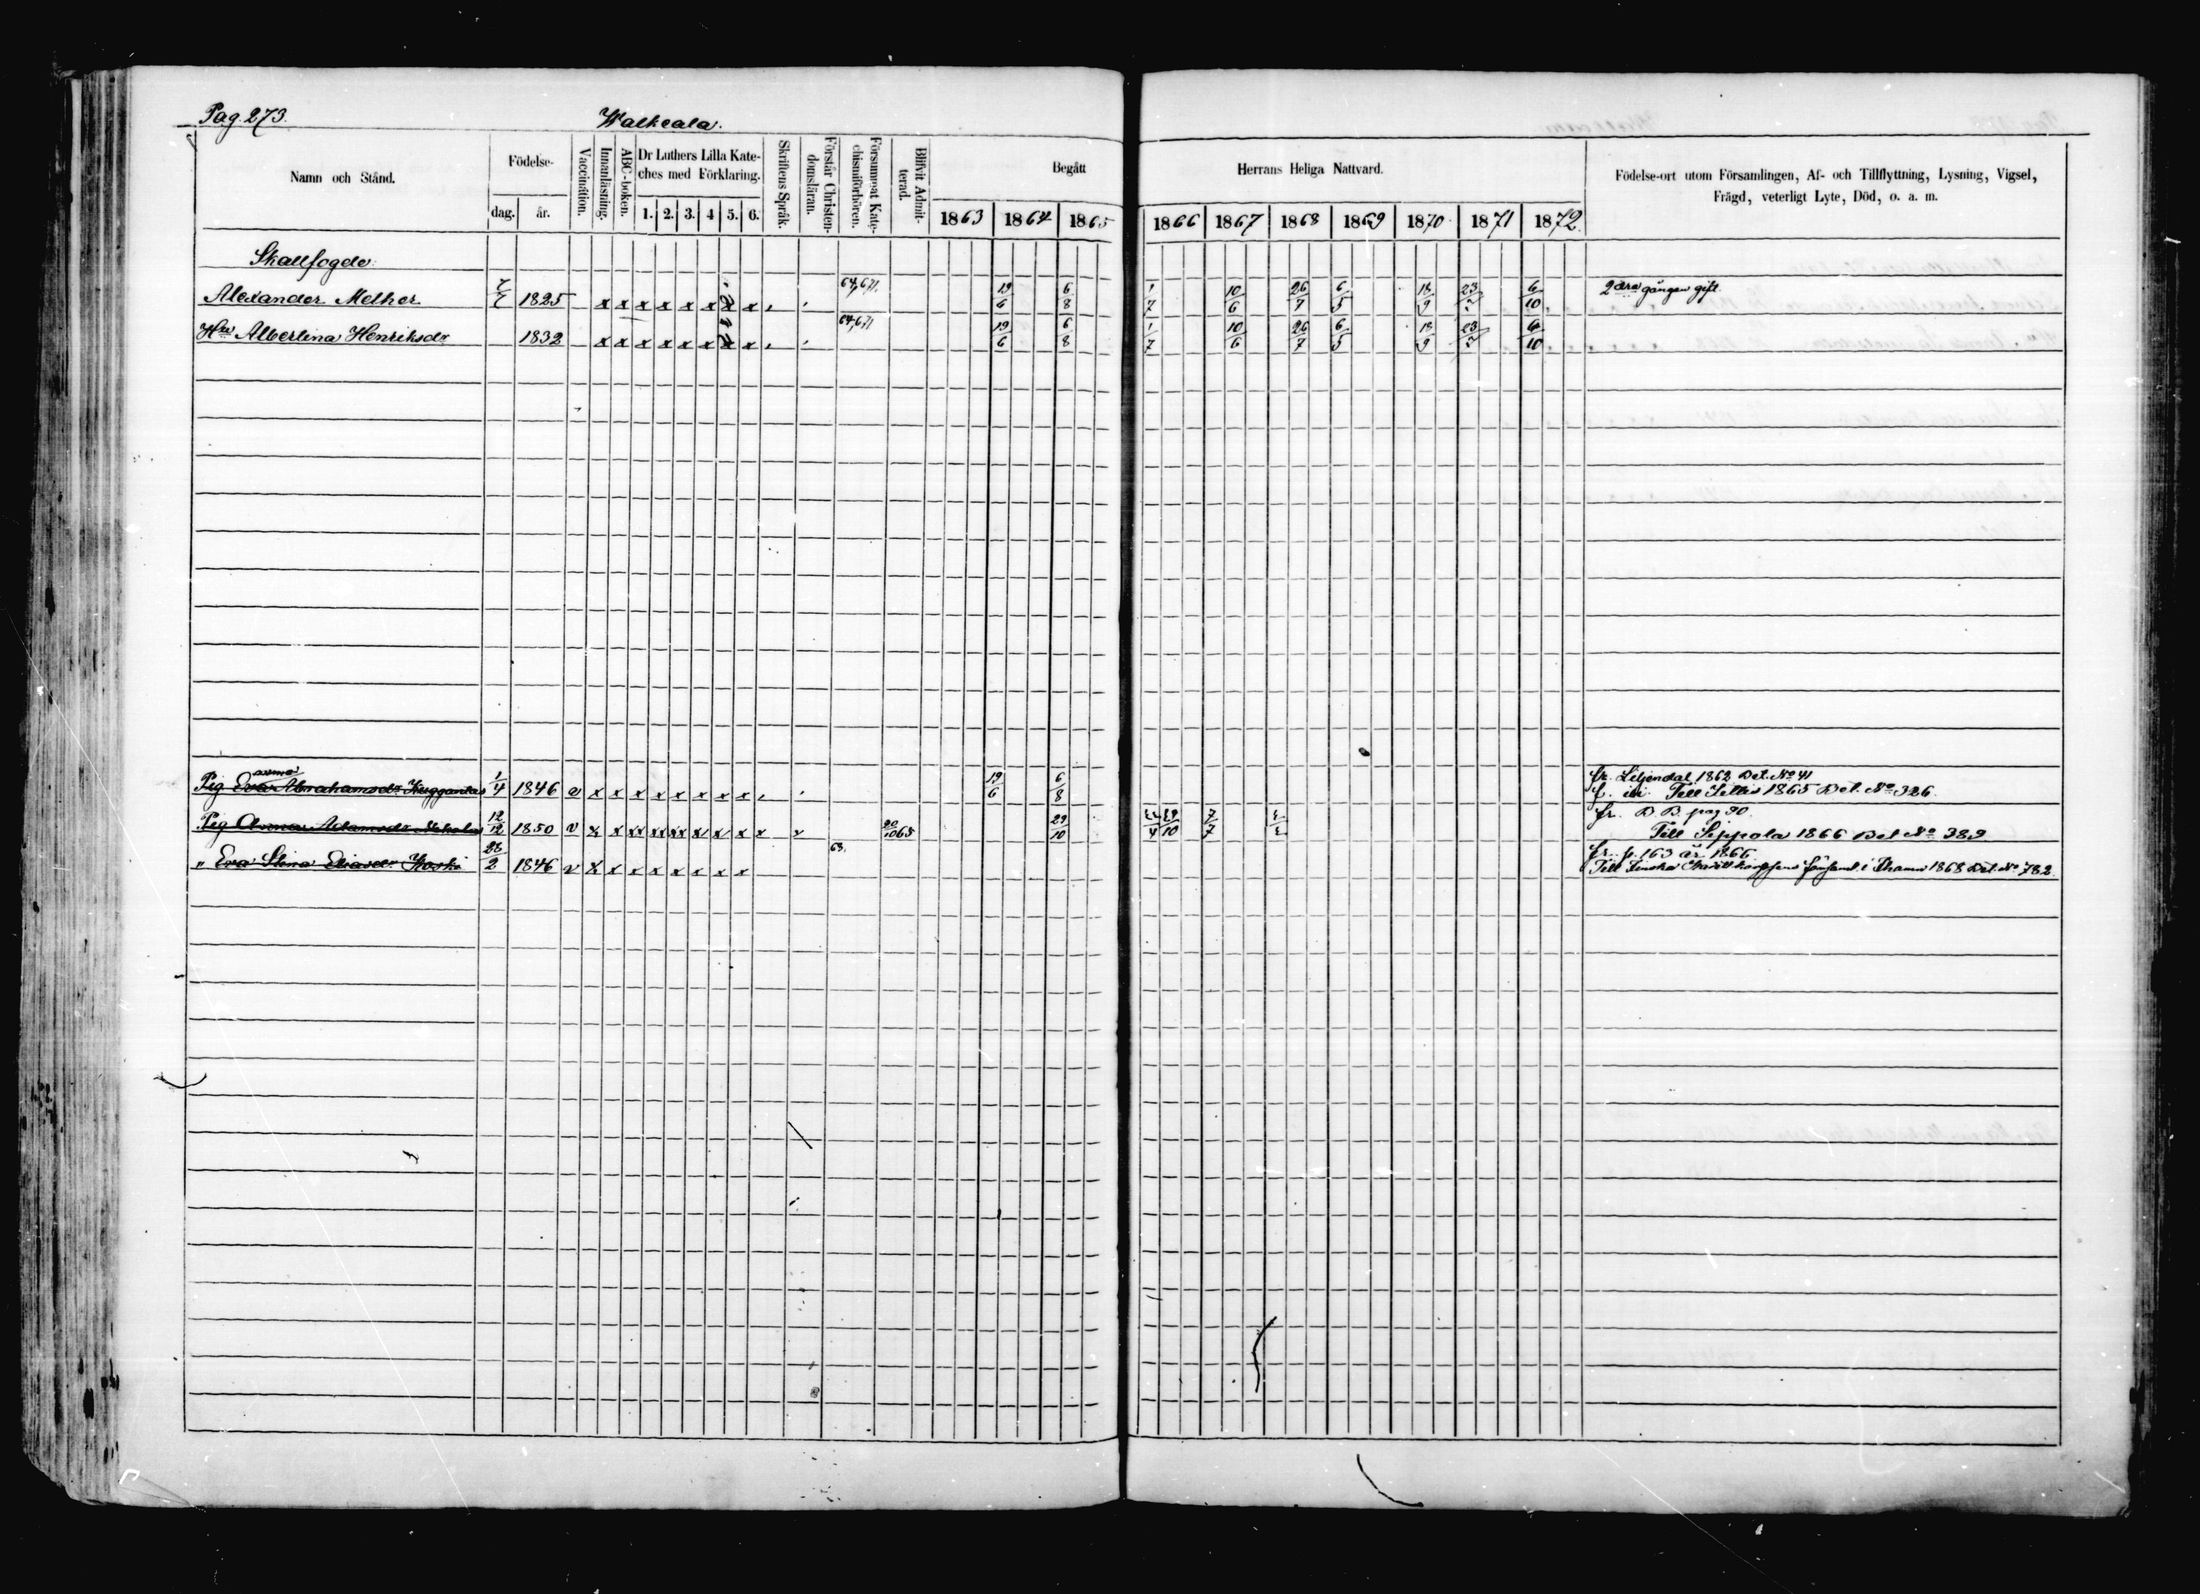 Pag. 273. Walkeala.
Namn och Stånd. Födelse- dag. år. Vaccination. Innanläsning. ABC-boken. Dr Luthers Lilla Kateches med Förklaring. 1. 2. 3. 4 5. 6. Skriftens Språk. Förstår Christendomsläran. Försummat Katechismiförhören. Blifvit Admitterad. Begått Herrans Heliga Nattvard. Födelse-ort utom Församlingen, Af- och Tillflyttning, Lysning, Vigsel, Frägd, veterligt Lyte, Död, o. a. m.
1863 1864 1865 1866 1867 1868 1869 1870 1871 1872.
Skallfogde
Alexander Melher 1825 x x x x x x x x 64,671. 19/6 6/8 1/7 10/6 26/7 6/5 18/9 23/7 6/10 2dra gången gift
Hu Albertina Henriksdr 1832 x x x x x x x x 64,671 19/6 6/8 1/7 10/6 26/7 6/5 18/9 23/7 6/10
Pig Eva Abrahamsdr Kuggantas 1/4 1846 v x x x x x x x x 19/6 6/8 fr. Liljendal 1862 Bet. No 41
Till 1865 Bet. No 326.
Pig Anna Adamsdr 12/12 1850 v x x xx xx xx x x x 20/10 65 29/10 7/7 fr. B. B. pag 90.
Till Seppola 1866 Bet No 389
" Eva Stina Eliasdr Koski 28/2 1846 v x x x x x x x x 63. fr. p. 163 år 1866
Till Finska i Thamn 1868 Bet. No 782.